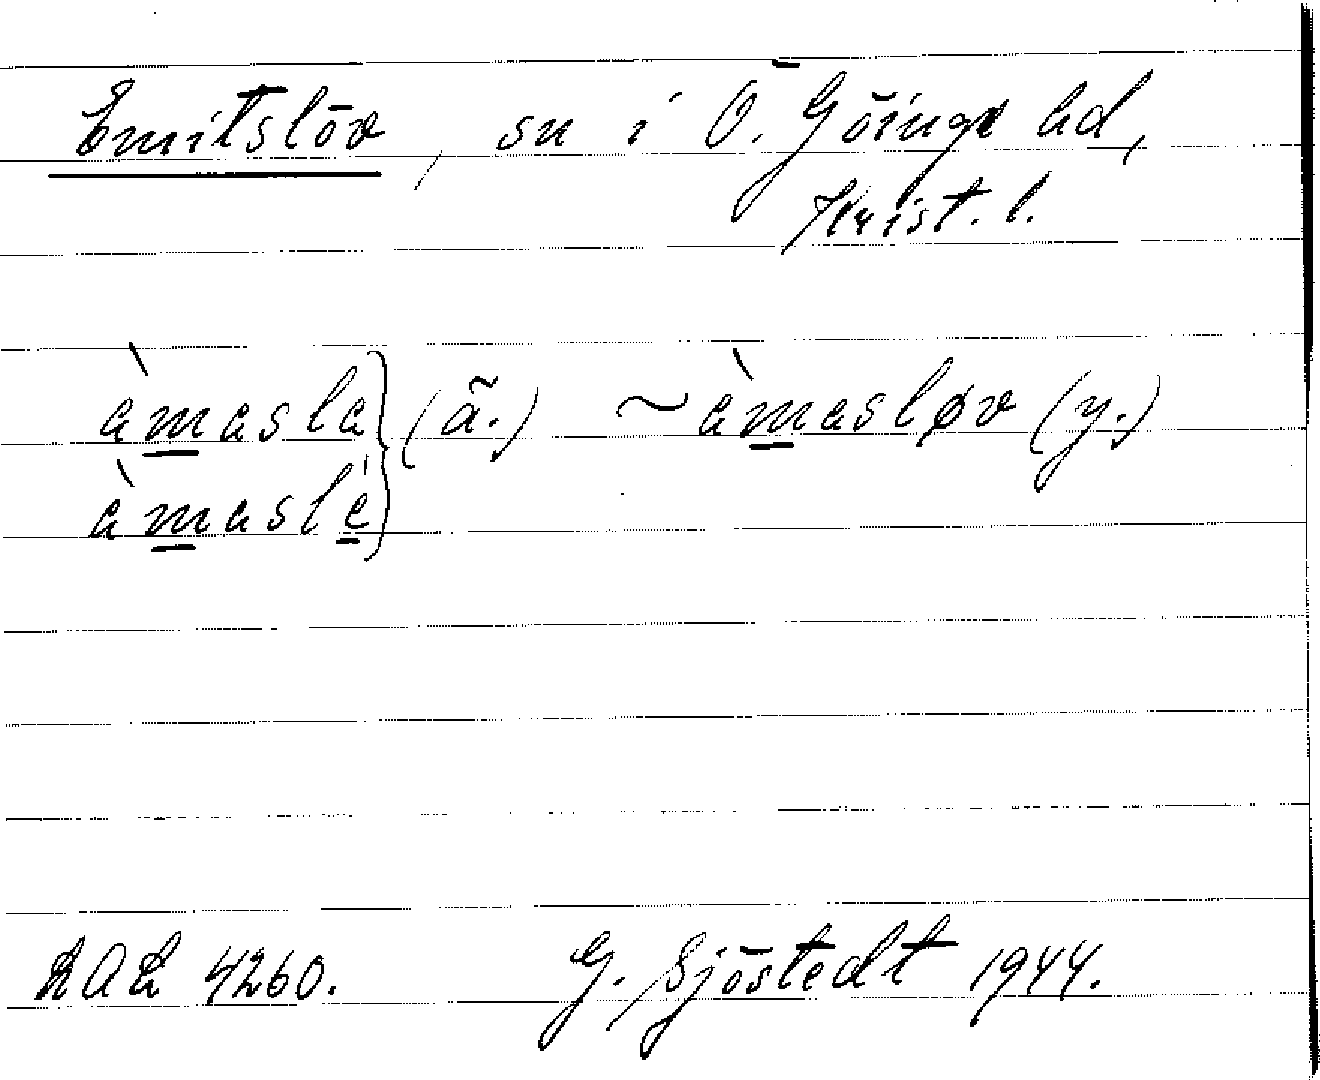 Emitslöv, sn i Ö. Göinge hd,
Krist. l.
àmasla } (ä.) ~ àmasløv (y.)
àmaslè
LAL 4260. G. Sjöstedt 1944.